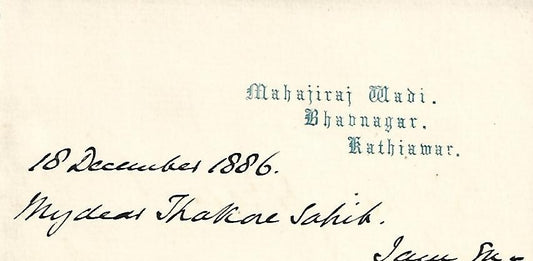 Mahajiraj Wadi.
Bhavnagar.
Kathiawar.
18 December 1886.
My dear Thakore Sahib.
I am